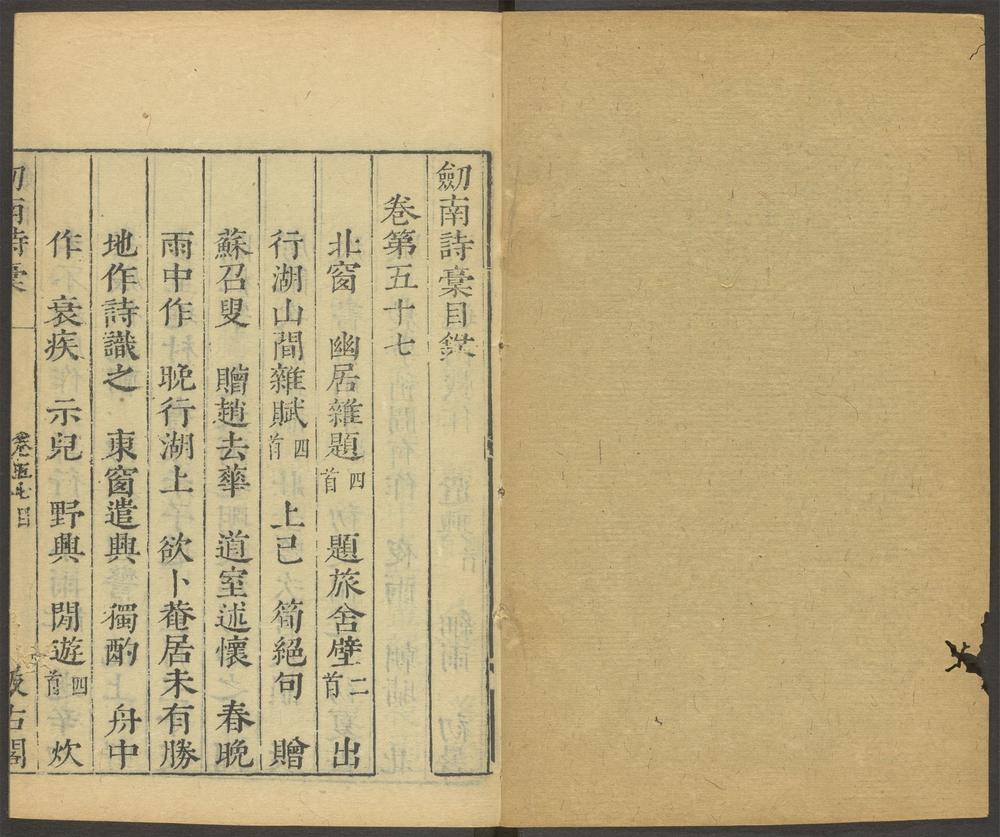 劒南詩稾目錄
卷第五十七
北窗 幽居雜題四首 題旅舍壁二首 出
行湖山間雜賦四首 上巳 筍絕句 贈
蘇召叟 贈趙去華 道室述懷 春晚
雨中作 晚行湖上 欲卜菴居未有勝
地作詩識之 東窗遣興 獨酌 舟中
作 衰疾 示兒 野興 閒遊四首 炊
劒南詩稾 卷五十七目 汲古閣